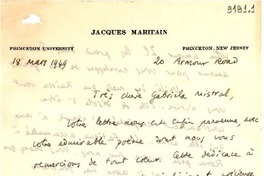 9181.1
JACQUES MARITAIN
PRINCETON UNIVERSITY PRINCETON, NEW JERSEY
18 mars 1949 20 Armour Road
Très chère Gabriela Mistral,
Votre lettre nous est enfin parvenue avec
votre admirable poème dont nous vous
remercions de tout cœur. Cette dédicace à